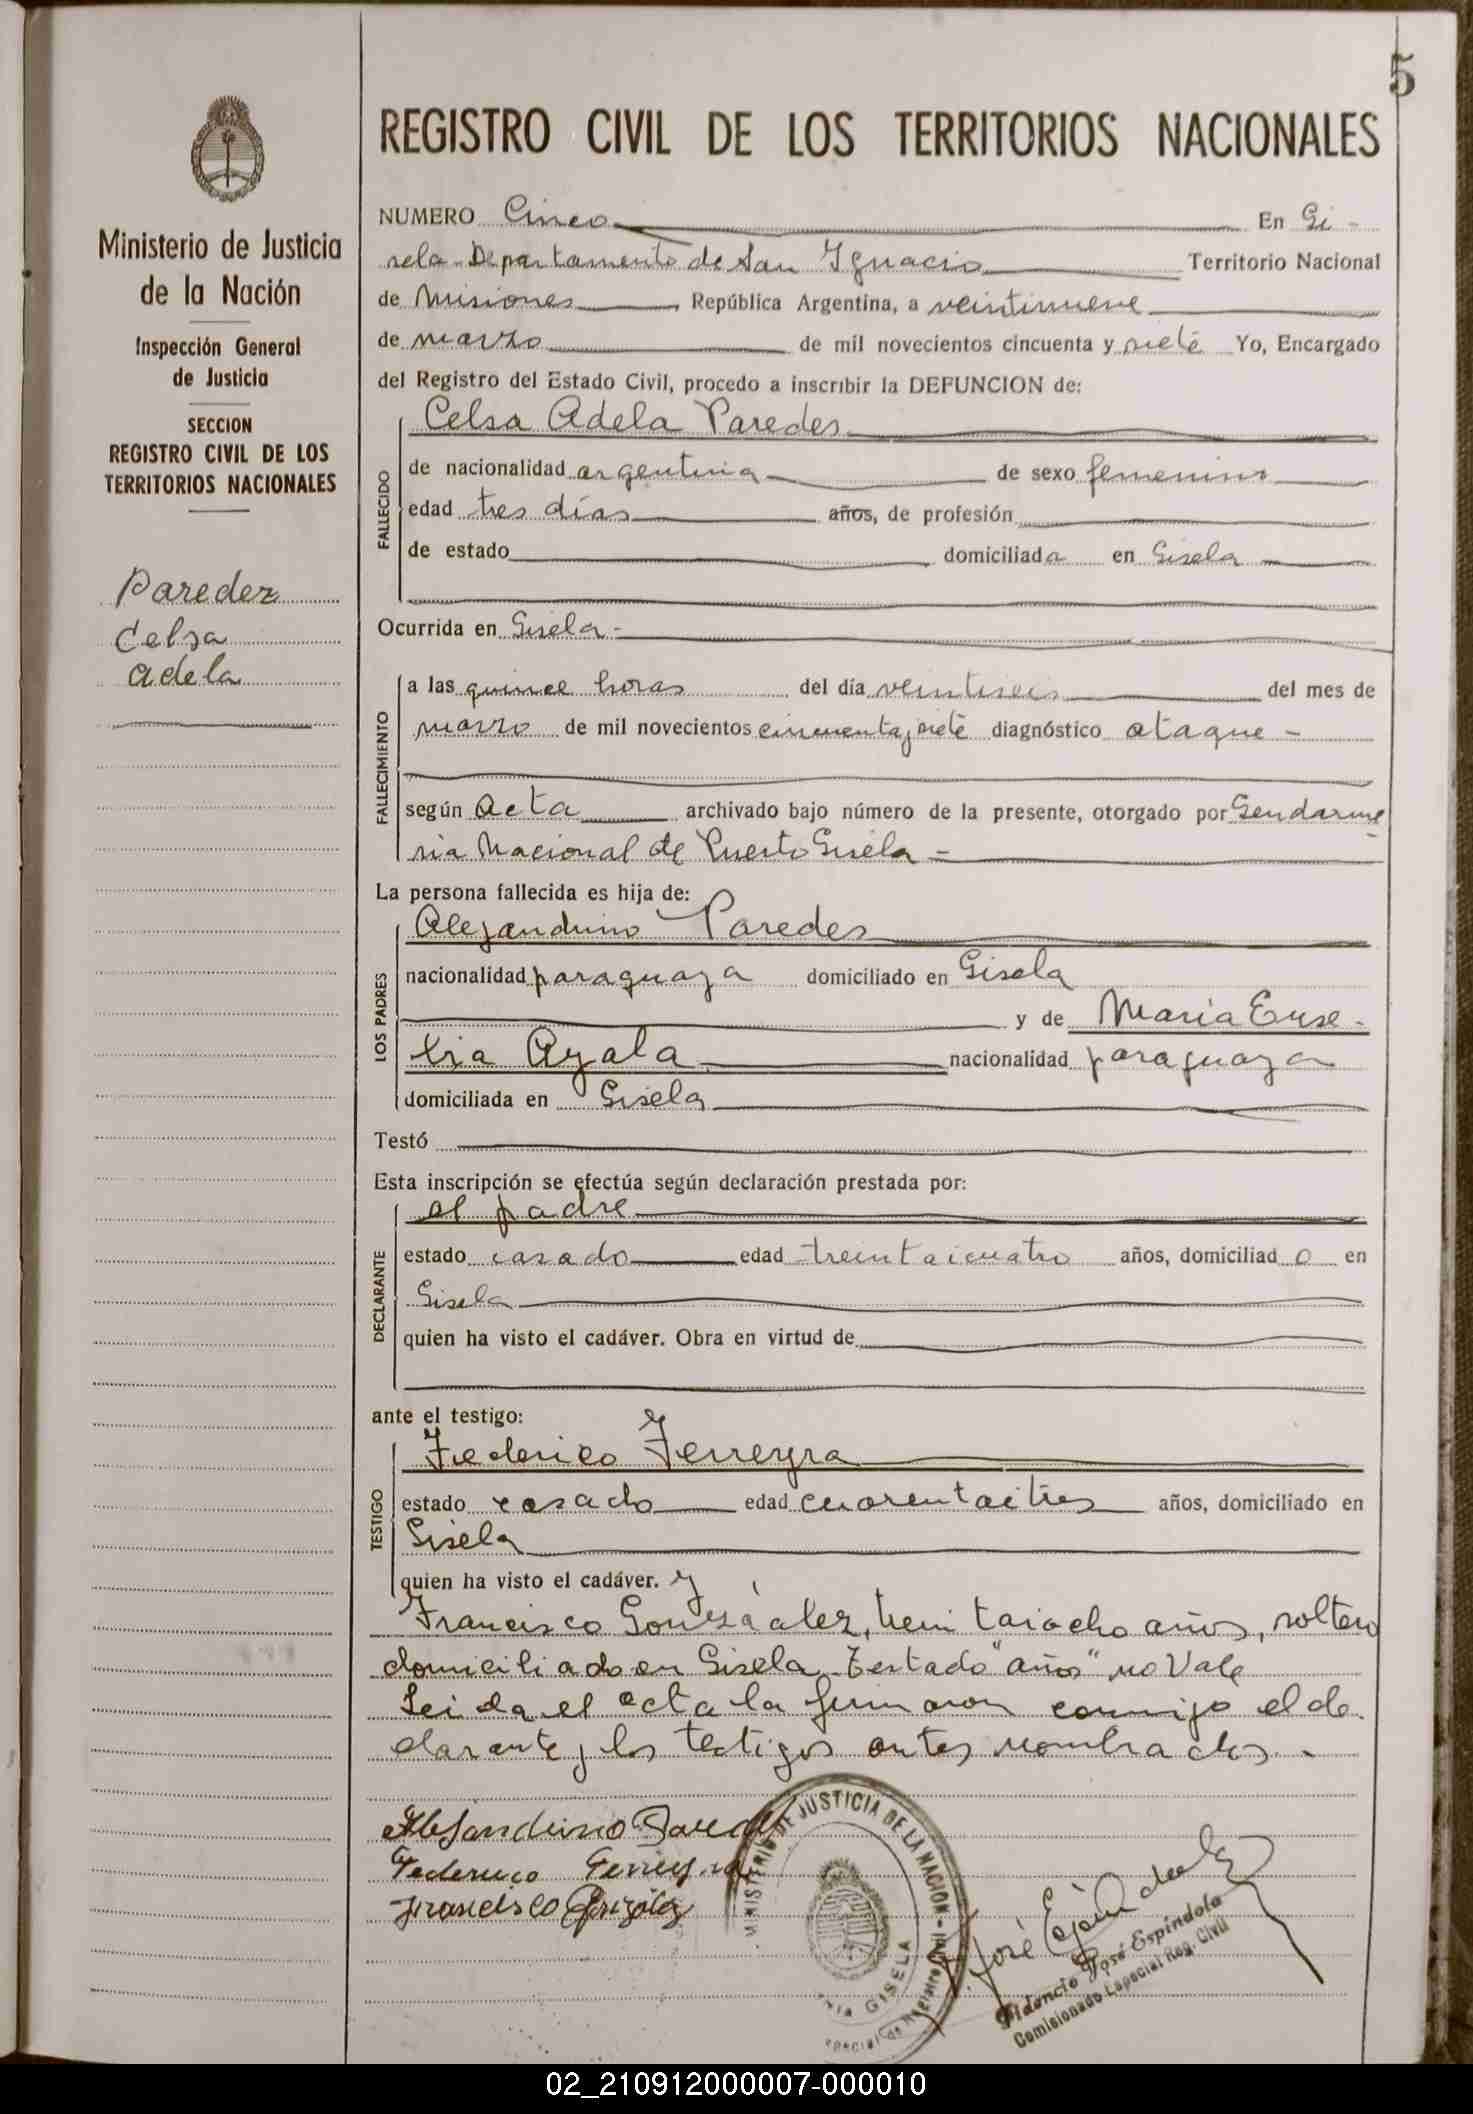 5
Ministerio de Justicia
de la Nación
Inspección General
de Justicia
SECCION
REGISTRO CIVIL DE LOS
TERRITORIOS NACIONALES
Paredez
Celsa
Adela
REGISTRO CIVIL DE LOS TERRITORIOS NACIONALES
NUMERO Cinco En Gi-
sela Departamento de San Ignacio Territorio Nacional
de Misiones, República Argentina, a veintinueve
de marzo de mil novecientos cincuenta y siete Yo, Encargado
del Registro del Estado Civil, procedo a inscribir la DEFUNCION de:
FALLECIDO
Celsa Adela Paredes
de nacionalidad argentina de sexo femenino
edad tres días años, de profesión
de estado domiciliada en Gisela
Ocurrida en Gisela-
FALLECIMIENTO
a las quince horas del día veintiseis del mes de
marzo de mil novecientos cincuenta y siete diagnóstico ataque -
según Acta archivado bajo número de la presente, otorgado por Gendarme
ria Nacional de Puerto Gisela -
La persona fallecida es hija de:
LOS PADRES
Alejandrino Paredes
nacionalidad paraguaya domiciliado en Gisela
y de Maria Euse-
bia Ayala nacionalidad paraguaya
domiciliada en Gisela
Testó
Esta inscripción se efectúa según declaración prestada por:
DECLARANTE
el padre
estado casado edad treintaicuatro años, domiciliado en
Gisela
quien ha visto el cadáver. Obra en virtud de
ante el testigo:
TESTIGO
Federico Ferreyra
estado casado edad cuarentaitres años, domiciliado en
Gisela
quien ha visto el cadáver. y
Francisco Gonzalez, treintaiocho años, soltero
domiciliado en Gisela Testado "años" no Vale
Leida el acta la firmaron conmigo el de
clarante y los testigos antes nombrados. -
Alejandrino Pared
Federico Ferreyra
Francisco
MINISTERIO DE JUSTICIA DE LA NACION
GISELA
José
Fidencio José Espíndola
Comisionado Especial Reg. Civil
02_210912000007-000010